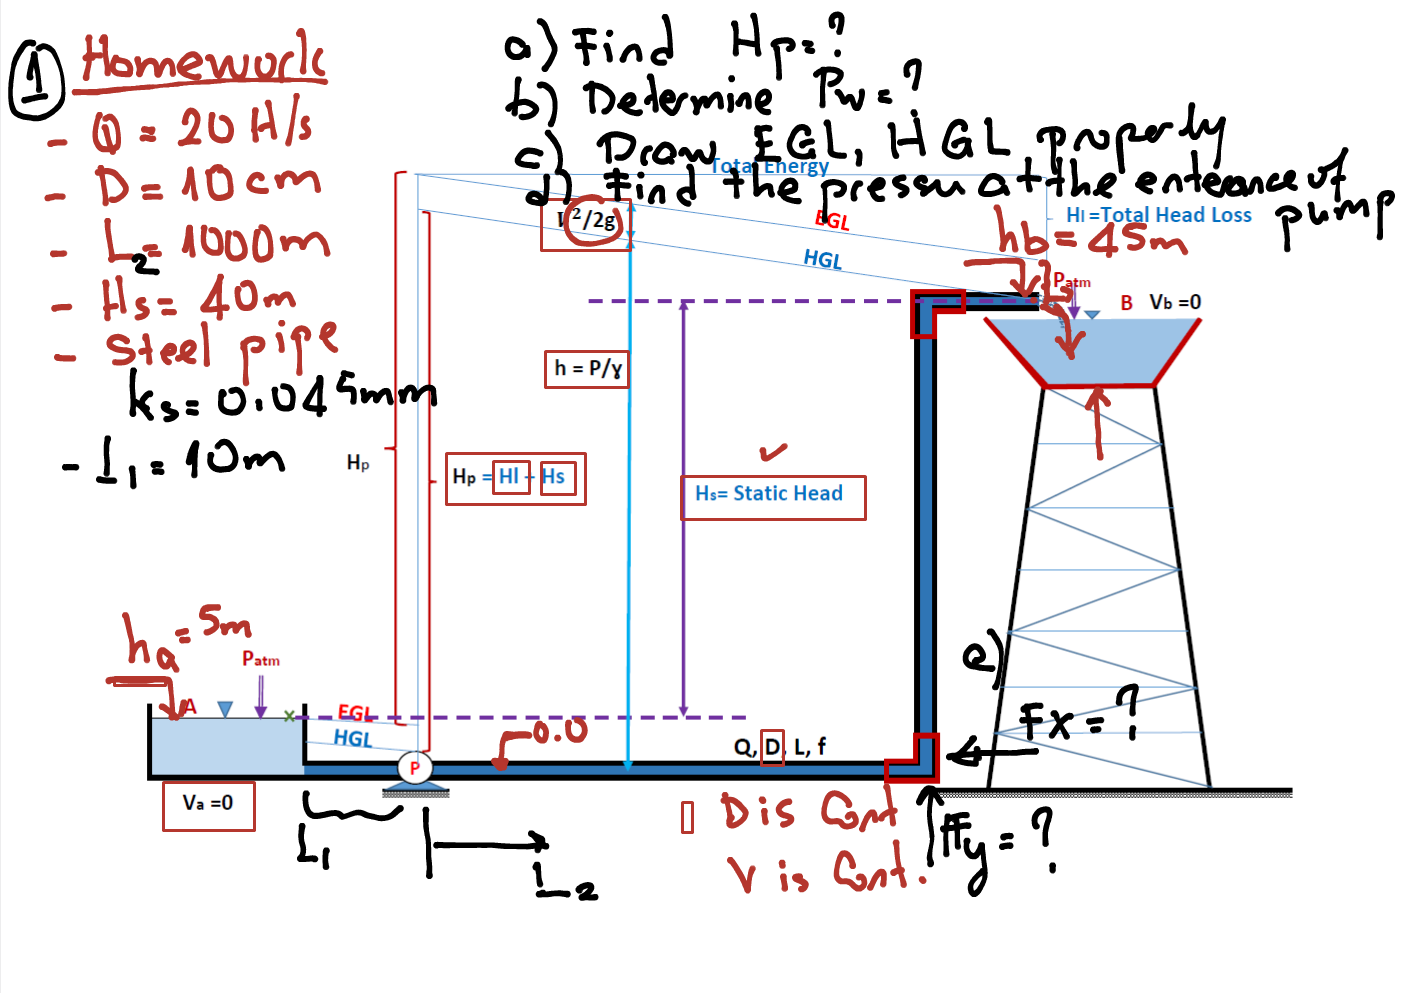 1 Homework
- Q = 20 H/s
- D = 10 cm
- L2 = 1000 m
- Hs = 40 m
- Steel pipe
ks = 0.045mm
- L1 = 10m
a) Find Hp = ?
b) Determine Pw = ?
c) Draw EGL, HGL properly
d) Find the pressu at the enterance of pump
Total Energy
V²/2g
EGL
HGL
Hl =Total Head Loss
hb = 45m
Patm
B
Vb =0
h = P/γ
Hp
Hp = Hl - Hs
Hs= Static Head
ha = 5m
Patm
A
EGL
HGL
0.0
P
Q, D, L, f
Va =0
L1
L2
D is Cont
V is Cont.
e)
Fx = ?
Fy = ?